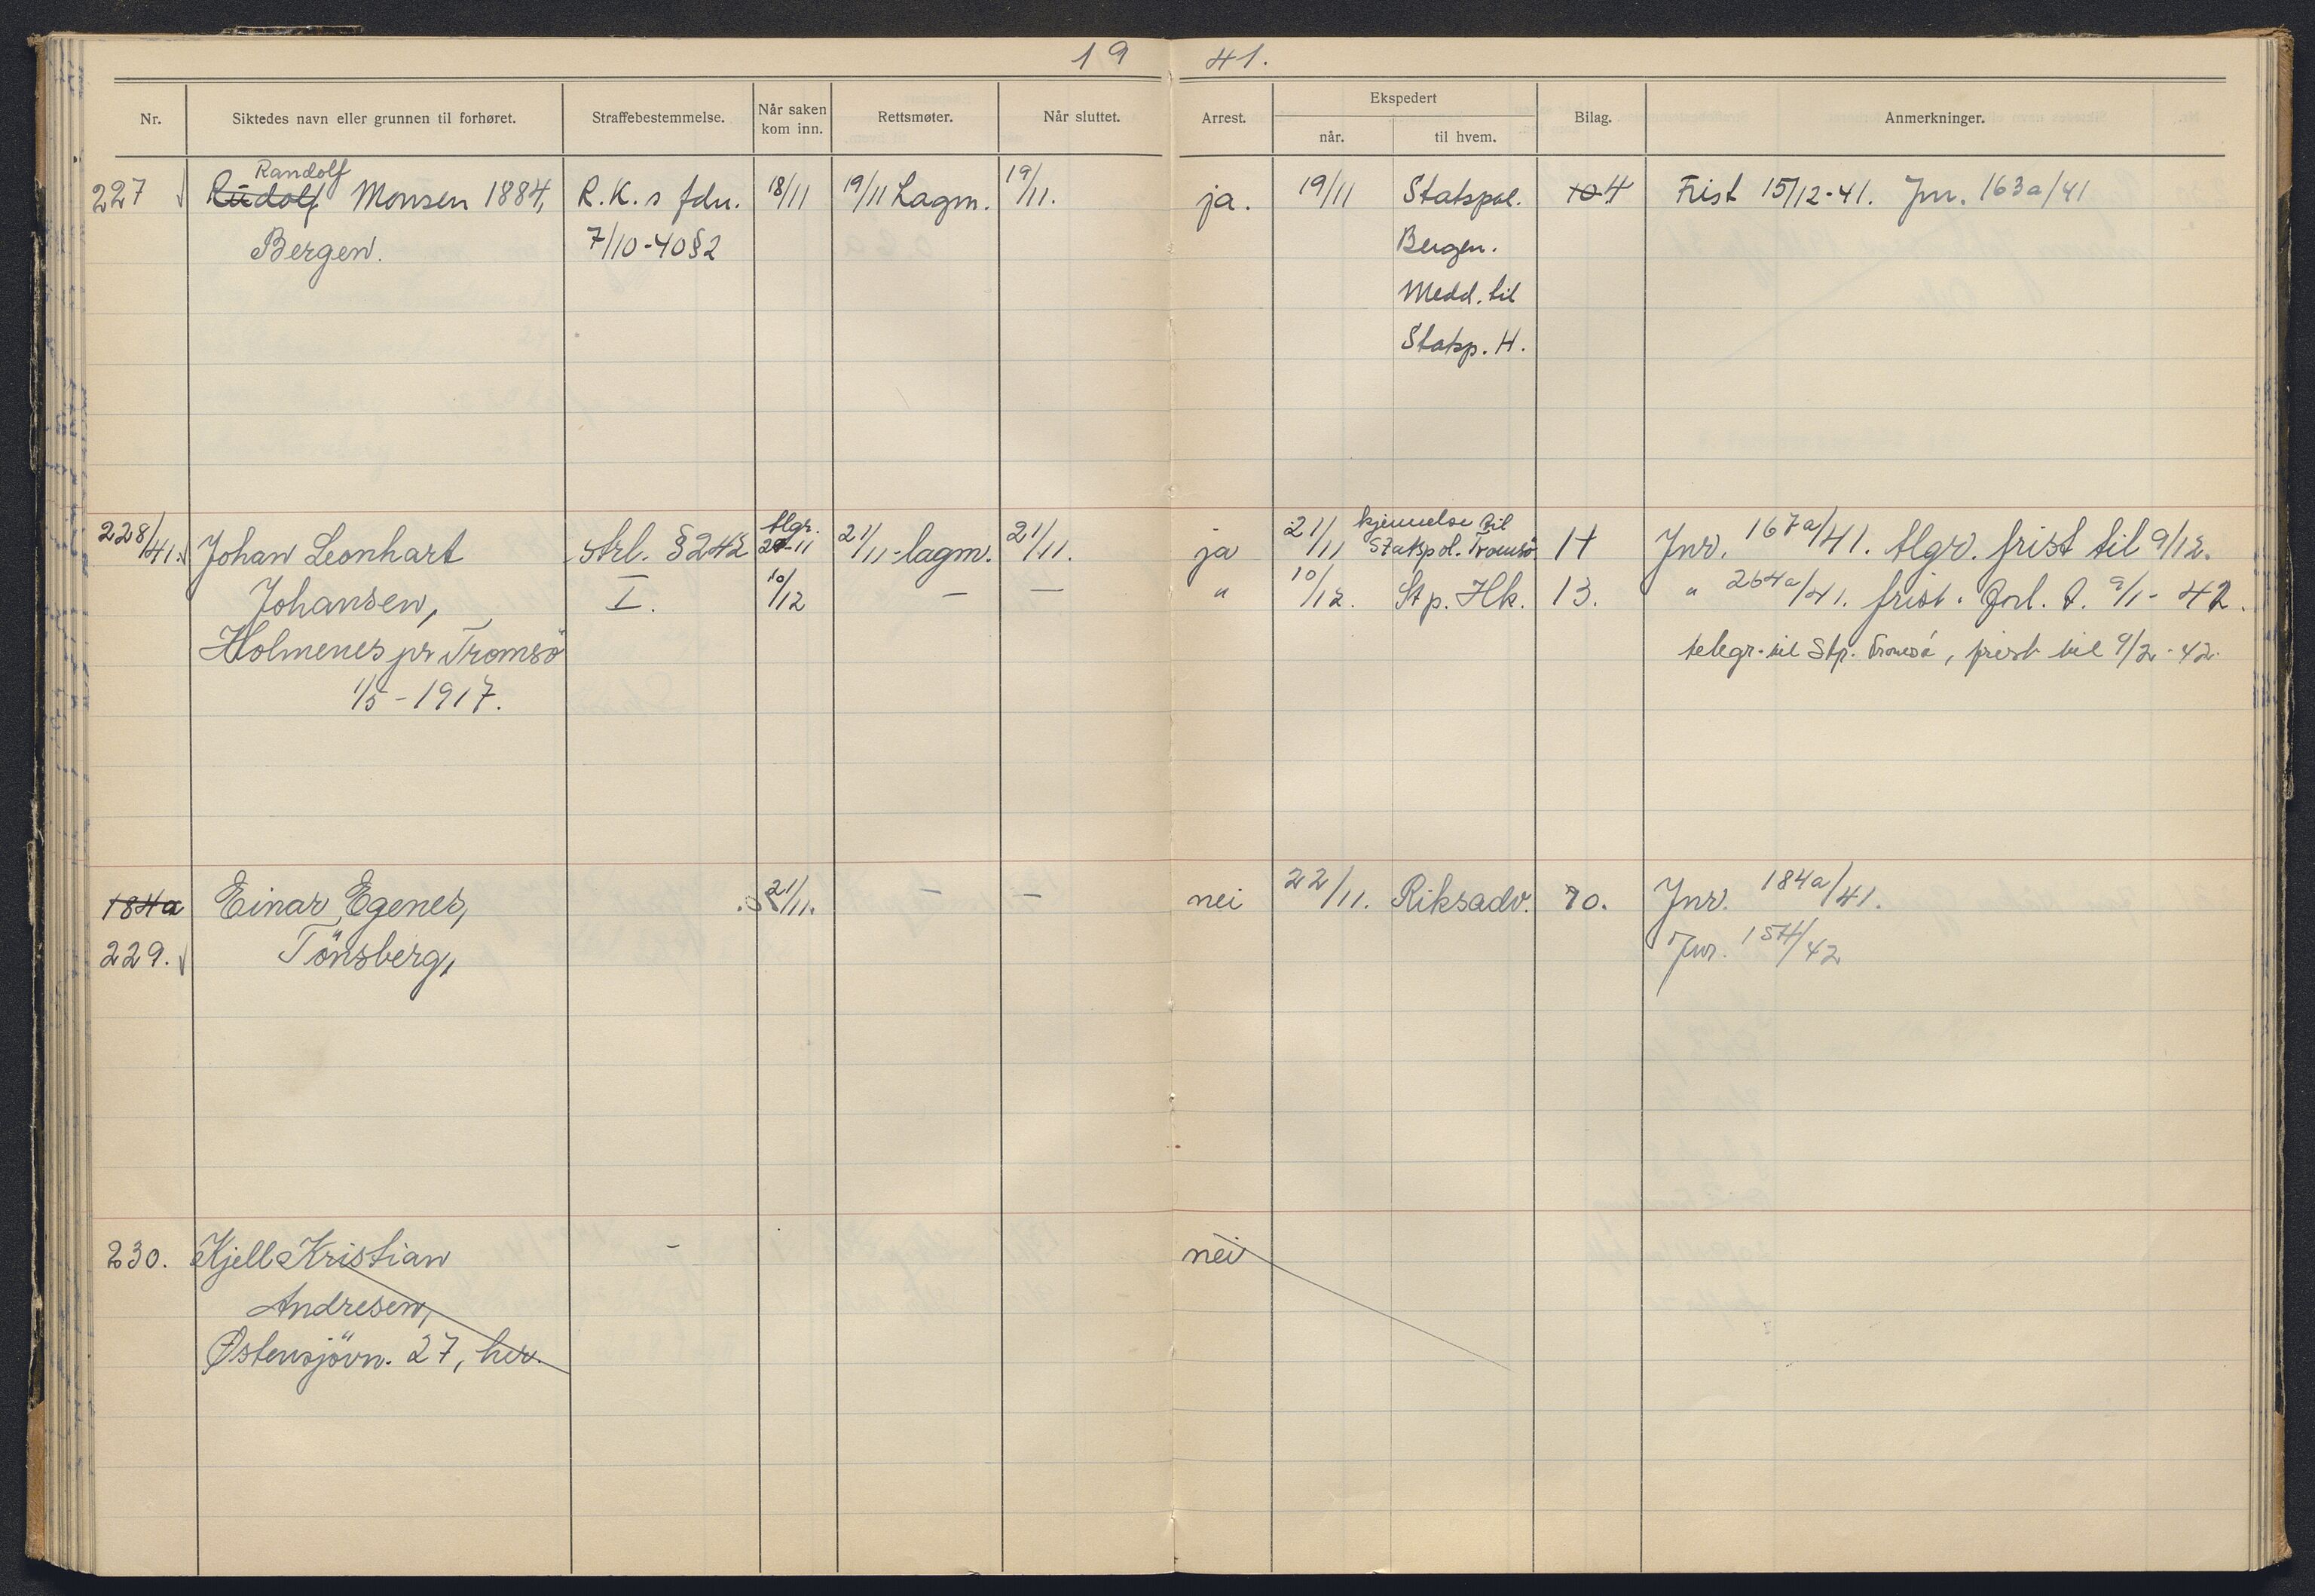 19 41.
Nr. Siktedes navn eller grunnen til forhøret. Straffebestemmelse. Når saken kom inn. Rettsmøter. Når sluttet. Arrest. Ekspedert når. til hvem. Bilag. Anmerkninger.
Randolf
227 Rudolf Monsen 1884, R. K. s fdn. 18/11 19/11 Lagm. 19/11. ja. 19/11 Statspol. 10 4 Frist 15/12-41. Jnr. 163a/41
Bergen. 7/10-40 § 2 Bergen.
Medd. til
Statsp. H.
tlgr. kjennelse til
228/41. Johan Leonhart strl. § 242 20-11 21/11-lagm. 21/11. ja 21/11 Statspol. Tromsö 4 Jnr. 167a/41. tlgr. frist til 9/12.
Johansen, I. 10/12 — — " 10/12. Stp. Hk. 13. " 264a/41. frist. forl. t. 9/1-42.
Holmenes pr Tromsö telegr. til Stp. Tromsö, frist til 9/2-42.
1/5-1917.
184a Einar Egenes, 21/11. — — nei 22/11. Riksadv. 70. Jnr. 184a/41.
229. Tönsberg, Jnr. 154/42
230. Kjell Kristian — nei
Andresen,
Østensjövn. 27, her.